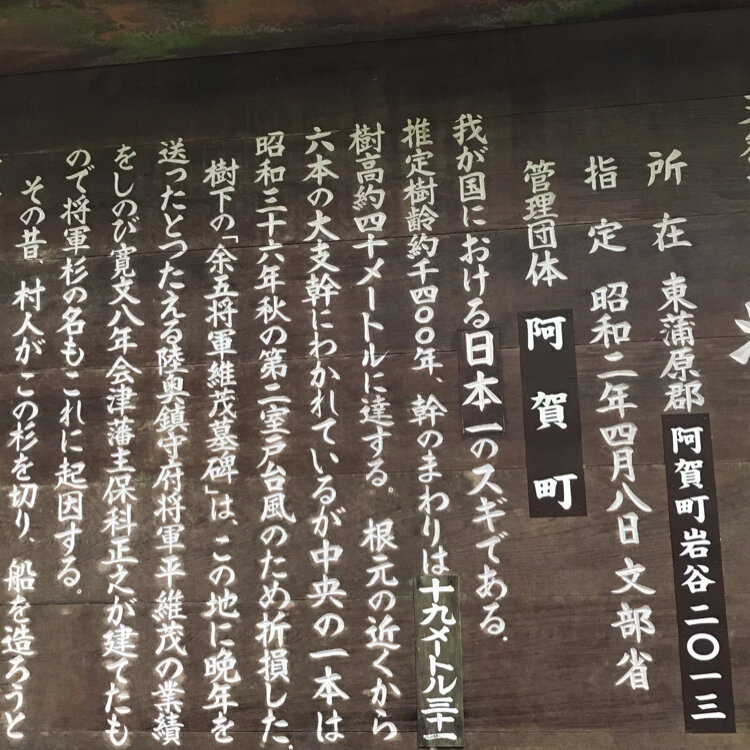 所在 東蒲原郡阿賀町岩谷二〇一三
指定 昭和二年四月八日文部省
管理団体 阿賀町
我が国における日本一のスギである。
推定樹齢約千四〇〇年、幹のまわりは十九メートル三十一
樹高約四十メートルに達する。根元の近くから
六本の大支幹にわかれているが中央の一本は
昭和三十六年秋の第二室戸台風のため折損した。
樹下の「余五将軍維茂墓碑」は、この地に晩年を
送ったとつたえる陸奥鎮守府将軍平維茂の業績
をしのび寛文八年会津藩主保科正之が建てたも
ので将軍杉の名もこれに起因する。
その昔 村人がこの杉を切り、船を造ろうと